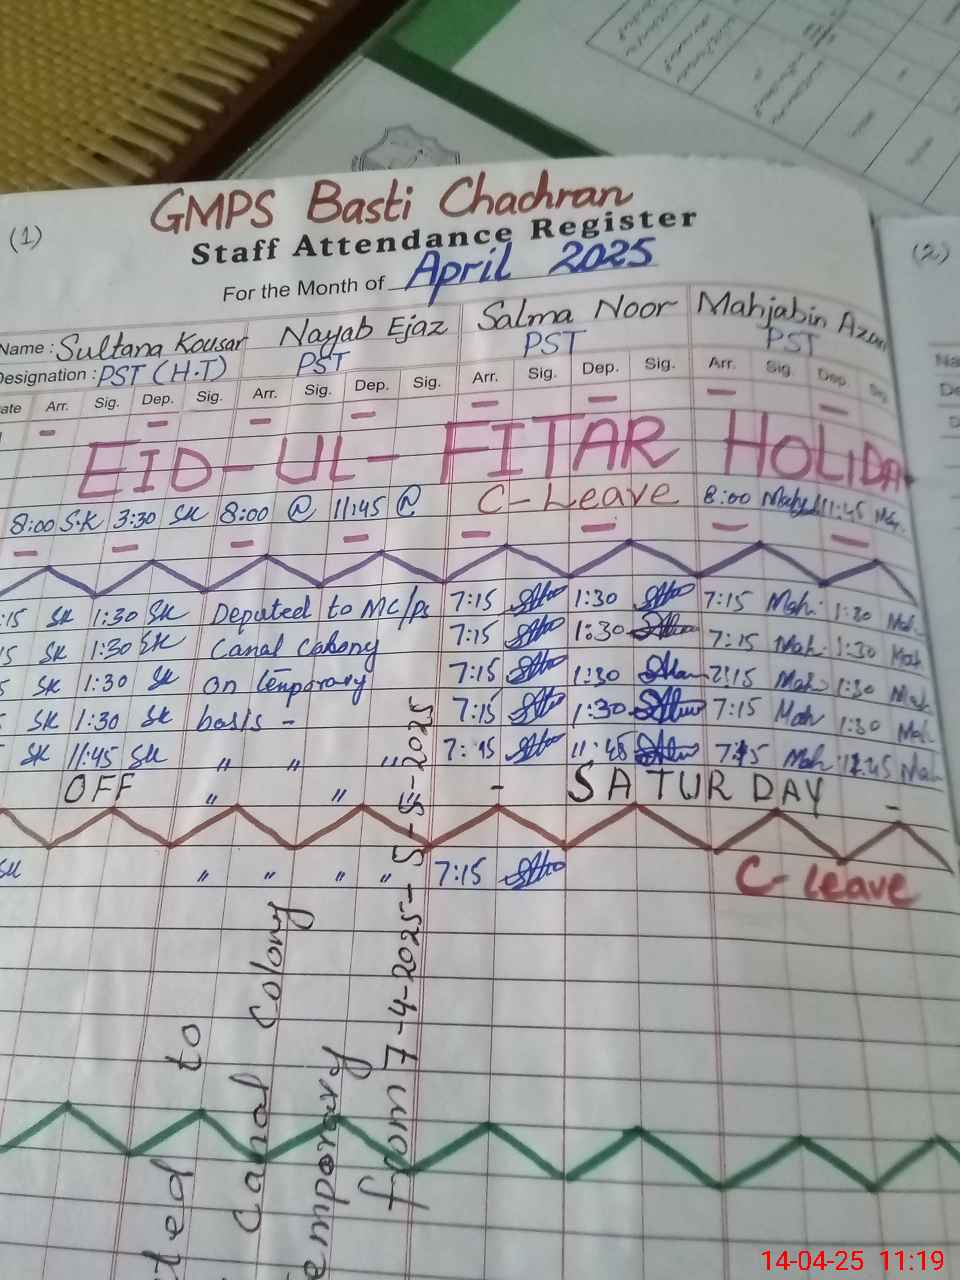 (1)
GMPS Basti Chachran
Staff Attendance Register
For the Month of April 2025
(2)
Name : Sultana Kousar Nayab Ejaz Salma Noor Mahjabin
Designation : PST (H.T) PST PST PST
ate Arr. Sig. Dep. Sig. Arr. Sig. Dep. Sig. Arr. Sig. Dep. Sig. Arr. Sig. Dep. Sig.
EID-UL-FITAR HOLIDA
8:00 S.K 3:30 SK 8:00 11:45 C-Leave 8:00 11:45
:15 SK 1:30 SK Deputed to MC/Ps 7:15 1:30 7:15 Mah. 1:30 Mah.
5 SK 1:30 SK Canal Colony 7:15 1:30 7:15 Mah. 1:30 Mah
SK 1:30 SK On temporary 7:15 1:30 7:15 Mah 1:30 Mah
SK 1:30 SK basis - 7:15 1:30 7:15 Mah 1:30 Mah
SK 11:45 SK " " " 7:15 11:45 7:15 Mah 11:45 Mah
OFF " " " - SATURDAY -
SK " " " " 7:15 C-Leave
ted to
Canal Colony
from 7-4-2025-5-5-2025
14-04-25 11:19